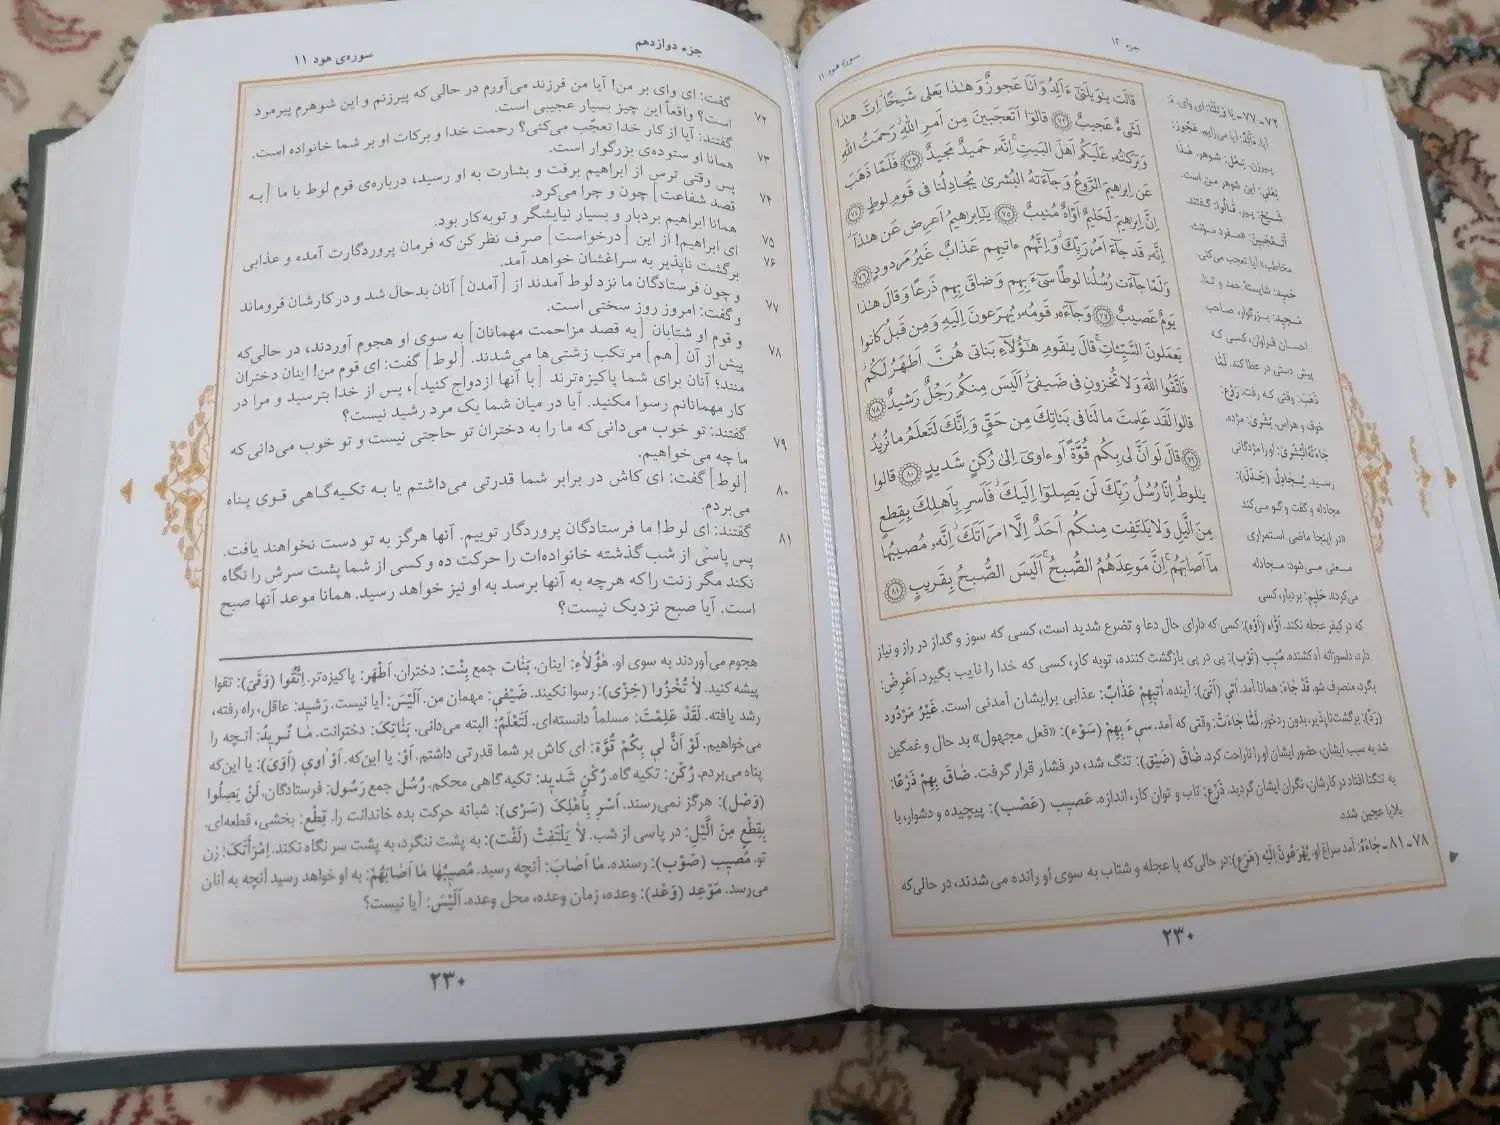 جزء ۱۲
سوره هود ۱۱
قالَت يٰوَيلَتىٰٓ ءَاَلِدُ وَاَنَا عَجوزٌ وَهٰذا بَعلى شَيخًا اِنَّ هٰذا
لَشَىءٌ عَجيبٌ ﴿۷۲﴾ قالوٓا اَتَعجَبينَ مِن اَمرِ اللّٰهِ رَحمَتُ اللّٰهِ
وَبَرَكٰتُهُ عَلَيكُم اَهلَ البَيتِ اِنَّهُ حَميدٌ مَجيدٌ ﴿۷۳﴾ فَلَمّا ذَهَبَ
عَن اِبرٰهيمَ الرَّوعُ وَجآءَتهُ البُشرىٰ يُجادِلُنا فى قَومِ لوطٍ ﴿۷۴﴾
اِنَّ اِبرٰهيمَ لَحَليمٌ اَوّاهٌ مُنيبٌ ﴿۷۵﴾ يٰٓاِبرٰهيمُ اَعرِض عَن هٰذآ
اِنَّهُ قَد جآءَ اَمرُ رَبِّكَ وَاِنَّهُم ءاتيهِم عَذابٌ غَيرُ مَردودٍ ﴿۷۶﴾
وَلَمّا جآءَت رُسُلُنا لوطًا سىٓءَ بِهِم وَضاقَ بِهِم ذَرعًا وَقالَ هٰذا
يَومٌ عَصيبٌ ﴿۷۷﴾ وَجآءَهُ قَومُهُ يُهرَعونَ اِلَيهِ وَمِن قَبلُ كانوا
يَعمَلونَ السَّيِّـٔاتِ قالَ يٰقَومِ هٰٓؤُلآءِ بَناتى هُنَّ اَطهَرُ لَكُم
فَاتَّقُوا اللّٰهَ وَلا تُخزونِ فى ضَيفى اَلَيسَ مِنكُم رَجُلٌ رَشيدٌ ﴿۷۸﴾
قالوا لَقَد عَلِمتَ ما لَنا فى بَناتِكَ مِن حَقٍّ وَاِنَّكَ لَتَعلَمُ ما نُريدُ
﴿۷۹﴾ قالَ لَو اَنَّ لى بِكُم قُوَّةً اَو ءاوى اِلىٰ رُكنٍ شَديدٍ ﴿۸۰﴾ قالوا
يٰلوطُ اِنّا رُسُلُ رَبِّكَ لَن يَصِلوٓا اِلَيكَ فَاَسرِ بِاَهلِكَ بِقِطعٍ
مِنَ الَّيلِ وَلا يَلتَفِت مِنكُم اَحَدٌ اِلَّا امرَاَتَكَ اِنَّهُ مُصيبُها
مآ اَصابَهُم اِنَّ مَوعِدَهُمُ الصُّبحُ اَلَيسَ الصُّبحُ بِقَريبٍ ﴿۸۱﴾
۷۲-۷۷- یا وَیْلَتٰا: ای وای. ءَ:
آیا. ءَاَلِدُ: آیا می‌زایم. عَجُوز:
پیرزن. بَعْل: شوهر. هٰذا
بَعْلی: این شوهر من است.
شَیْخ: پیر. قٰالُوا: گفتند.
أَتَعْجَبینَ: «مفرد مؤنث
مخاطب» آیا تعجب می‌کنی.
حَمید: شایستهٔ حمد و ثنا.
مَجید: بزرگوار، صاحب
احسان فراوان، کسی که
پیش دستی در عطا کند. لَمّٰا
ذَهَبَ: وقتی که رفت. رَوْع:
خوف و هراس. بُشْریٰ: مژده.
جٰاءَتْهُ الْبُشْریٰ: او را مژدگانی
رسید. یُجٰادِلُ (جَدَل):
مجادله و گفت و گو می‌کند
«در اینجا ماضی استمراری
معنی می‌شود: مجادله
می‌کرد». حَلیم: بردبار، کسی
که در کیفر عجله نکند. اَوّٰاه (اَوْه): کسی که دارای حال دعا و تضرع شدید است، کسی که سوز و گداز در راز و نیاز
دارد، دلسوزانه آه کشنده. مُنیب (نَوْب): پی در پی بازگشت کننده، توبه کار، کسی که خدا را نایب بگیرد. اَعْرِضْ:
بگرد، منصرف شو. قَدْ جٰاءَ: همانا آمد. اٰتی (اَتَیَ): آینده. اٰتیهِمْ عَذٰابٌ: عذابی برایشان آمدنی است. غَیْرُ مَرْدُود
(رَدّ): برگشت‌ناپذیر، بدون ردخور. لَمّٰا جٰاءَتْ: وقتی که آمد. سیءَ بِهِمْ (سَوْء): «فعل مجهول» بد حال و غمگین
شد به سبب ایشان، حضور ایشان او را ناراحت کرد. ضٰاقَ (ضَیْق): تنگ شد، در فشار قرار گرفت. ضٰاقَ بِهِمْ ذَرْعًا:
به تنگنا افتاد در کارشان، نگران ایشان گردید. ذَرْع: تاب و توان کار، اندازه. عَصیب (عَصْب): پیچیده و دشوار، یا
بلایا عجین شده.
۷۸-۸۱- جٰاءَهُ: آمد سراغ او. یُهْرَعُونَ اِلَیْهِ (هَرَع): در حالی‌که با عجله و شتاب به سوی او رانده می‌شدند، در حالی‌که
۲۳۰
جزء دوازدهم
سوره‌ی هود ۱۱
۷۲ گفت: ای وای بر من! آیا من فرزند می‌آورم در حالی که پیرزنم و این شوهرم پیرمرد
است؟ واقعاً این چیز بسیار عجیبی است.
۷۳ گفتند: آیا از کار خدا تعجّب می‌کنی؟ رحمت خدا و برکات او بر شما خانواده است.
همانا او ستوده‌ی بزرگوار است.
۷۴ پس وقتی ترس از ابراهیم برفت و بشارت به او رسید، درباره‌ی قوم لوط با ما [به
قصد شفاعت] چون و چرا می‌کرد.
۷۵ همانا ابراهیم بردبار و بسیار نیایشگر و توبه‌کار بود.
۷۶ ای ابراهیم! از این [درخواست] صرف نظر کن که فرمان پروردگارت آمده و عذابی
برگشت ناپذیر به سراغشان خواهد آمد.
۷۷ و چون فرستادگان ما نزد لوط آمدند از [آمدن] آنان بدحال شد و در کارشان فروماند
و گفت: امروز روز سختی است.
۷۸ و قوم او شتابان [به قصد مزاحمت مهمانان] به سوی او هجوم آوردند، در حالی‌که
پیش از آن [هم] مرتکب زشتی‌ها می‌شدند. [لوط] گفت: ای قوم من! اینان دختران
منند؛ آنان برای شما پاکیزه‌ترند [با آنها ازدواج کنید]، پس از خدا بترسید و مرا در
کار مهمانانم رسوا مکنید. آیا در میان شما یک مرد رشید نیست؟
۷۹ گفتند: تو خوب می‌دانی که ما را به دختران تو حاجتی نیست و تو خوب می‌دانی که
ما چه می‌خواهیم.
۸۰ [لوط] گفت: ای کاش در برابر شما قدرتی می‌داشتم یا به تکیه‌گاهی قوی پناه
می‌بردم.
۸۱ گفتند: ای لوط! ما فرستادگان پروردگار توییم. آنها هرگز به تو دست نخواهند یافت.
پس پاسی از شب گذشته خانواده‌ات را حرکت ده و کسی از شما پشت سرش را نگاه
نکند مگر زنت را که هرچه به آنها برسد به او نیز خواهد رسید. همانا موعد آنها صبح
است. آیا صبح نزدیک نیست؟
هجوم می‌آوردند به سوی او. هٰؤُلاٰءِ: اینان. بَنٰات جمع بِنْت: دختران. اَطْهَر: پاکیزه‌تر. اِتَّقُوا (وَقَیَ): تقوا
پیشه کنید. لاٰ تُخْزُوا (خِزْی): رسوا نکنید. ضَیْفی: مهمان من. اَلَیْسَ: آیا نیست. رَشید: عاقل، راه رفته،
رشد یافته. لَقَدْ عَلِمْتَ: مسلماً دانسته‌ای. لَتَعْلَمُ: البته می‌دانی. بَنٰاتِکَ: دخترانت. مٰا نُریدُ: آنچه را
می‌خواهیم. لَوْ اَنَّ لی بِکُمْ قُوَّة: ای کاش بر شما قدرتی داشتم. اَوْ: یا این‌که. اَوْ اٰوی (اَوَیَ): یا این‌که
پناه می‌بردم. رُکْن: تکیه گاه. رُکْنٍ شَدید: تکیه‌گاهی محکم. رُسُل جمع رَسُول: فرستادگان. لَنْ یَصِلُوا
(وَصْل): هرگز نمی‌رسند. اَسْرِ بِاَهْلِکَ (سَرْی): شبانه حرکت بده خاندانت را. قِطْع: بخشی، قطعه‌ای.
بِقِطْعٍ مِنَ الَّیْلِ: در پاسی از شب. لاٰ یَلْتَفِتْ (لَفْت): به پشت ننگرد، به پشت سر نگاه نکند. اِمْرَأَتَکَ: زن
تو. مُصیب (صَوْب): رسنده. مٰا اَصٰابَ: آنچه رسید. مُصیبُهٰا مٰا اَصٰابَهُمْ: به او خواهد رسید آنچه به آنان
می‌رسد. مَوْعِد (وَعْد): وعده، زمان وعده، محل وعده. اَلَیْسَ: آیا نیست؟
۲۳۰